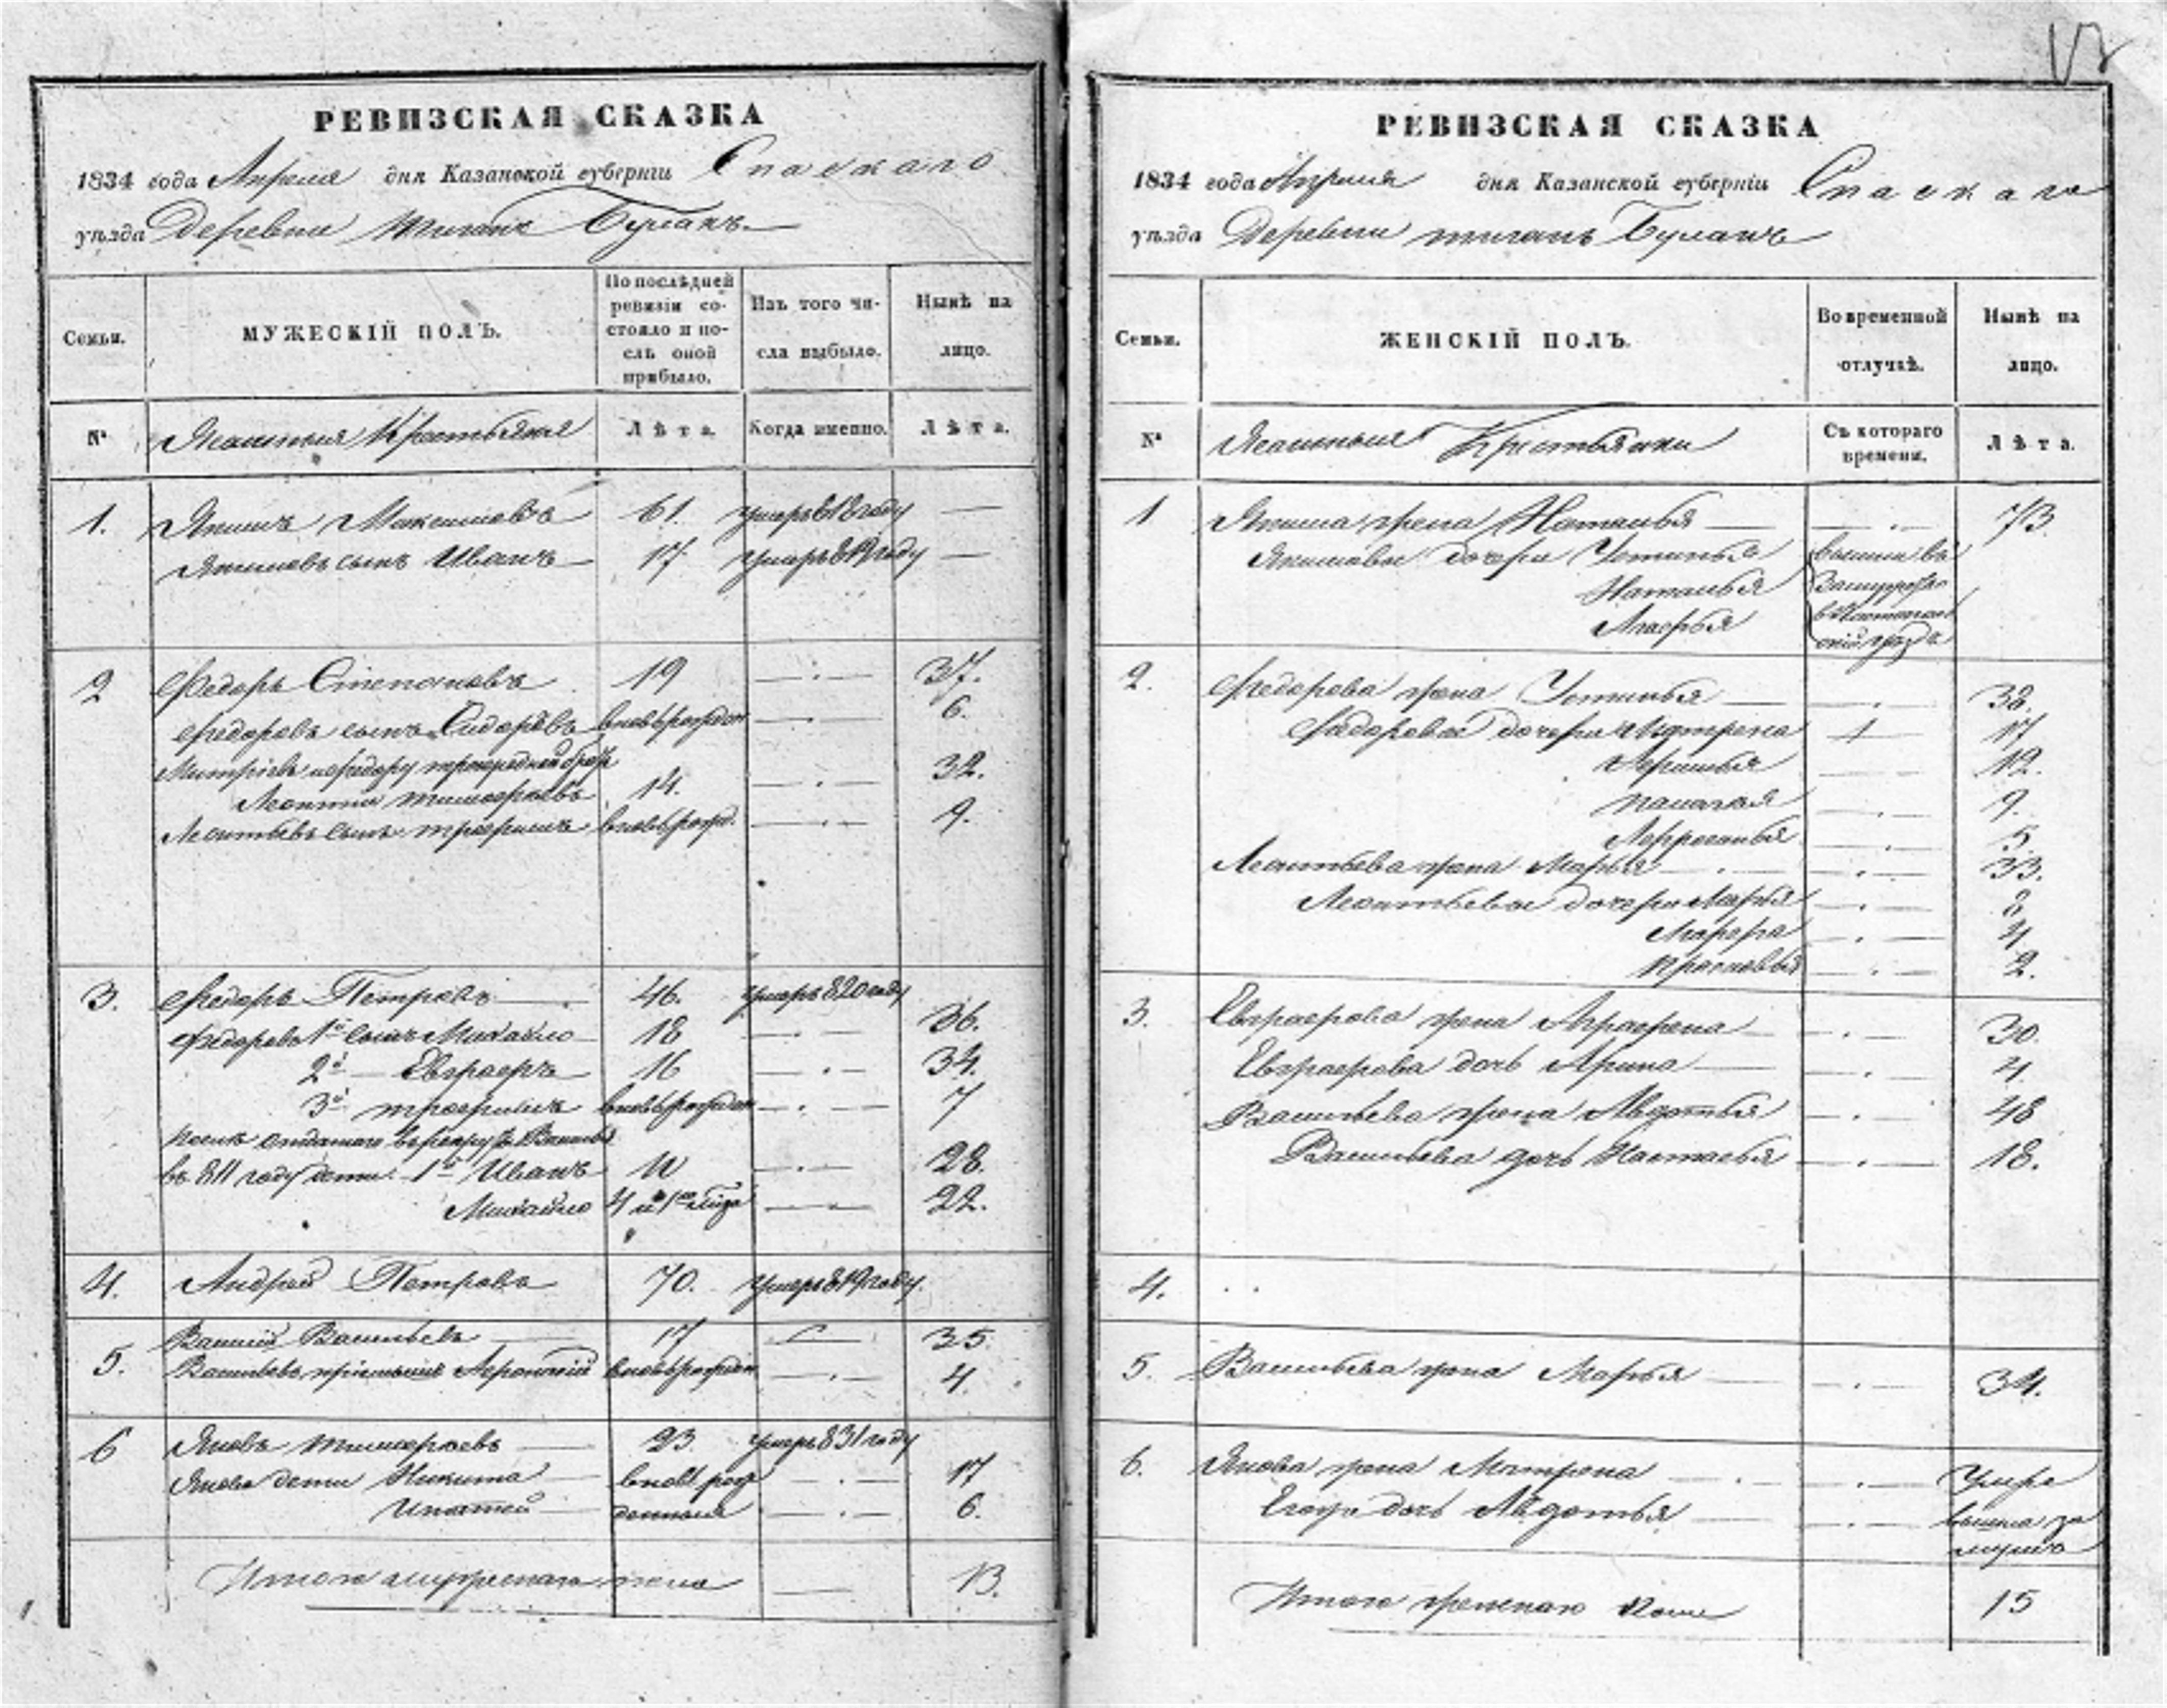 РЕВИЗСКАЯ СКАЗКА
1834 года Апреля дня Казанской губернiи Спаскаго
уѣзда Деревни Тиганъ Буланъ
Семьи.
МУЖЕСКIЙ ПОЛЪ.
По послѣдней ревизiи состояло и послѣ оной прибыло.
Изъ того числа выбыло.
Нынѣ на лицо.
№
Ясашныя Крестьяня
Лѣта.
Когда именно.
Лѣта.
1. Якимъ Максимовъ 61. умеръ 818 году —
Якимовъ сынъ Иванъ 17 умеръ 819 году —
2 Федоръ Степановъ 19 37.
Федоровъ сынъ Сидоръ вновьрожден 6.
Федору троюродной братъ 32.
Леонтей Тимофеевъ 14.
Леонтьевъ сынъ Трофимъ вновьрожд. 9.
3. Федоръ Петровъ 46. умеръ 820 году
Федоровъ 1й сынъ Михайло 18 36.
2й Евграфъ 16 34.
3й Трофимъ вновьрожден 7
отданаго в рекруты Василья
въ 811 году дети 1й Иванъ 10 28.
Михайло 4 22.
4. Андрей Петровъ 70. умеръ 819 году.
5. Василiй Васильевъ 17 35.
Васильевъ прiемышъ вновьрожден 4.
6 Яковъ Тимофеевъ 23 умеръ 831 году
Якова дети Никита вновь рож 17
Ипатей денныя 6.
Итого мужеска пола 13.
РЕВИЗСКАЯ СКАЗКА
1834 года Апреля дня Казанской губернiи Спаскаго
уѣзда Деревни Тиганъ Буланъ
Семьи.
ЖЕНСКIЙ ПОЛЪ.
Во временной отлучкѣ.
Нынѣ на лицо.
№
Ясашныя Крестьянки
Съ котораго времени.
Лѣта.
1 Якима жена Наталья 73.
Якимовы дочери Устинья вышли въ
Наталья замужество
Марья
2. Федорова жена Устинья 38.
Федоровы дочери Матрена 17
12.
Палагея 9.
5.
Леонтьева жена Марья 33.
Леонтьевы дочери Марья 8
Марфа 4
Прасковья 2.
3. Евграфова жена Аграфена 30.
Евграфова дочь Арина 4.
Васильева жена Авдотья 48
Васильева дочь Настасья 18.
4.
5. Васильева жена Марья 34.
6. Якова жена Матрена Умре
Егоже дочь Авдотья вышла за
мужъ
Итого женскаго пола 15